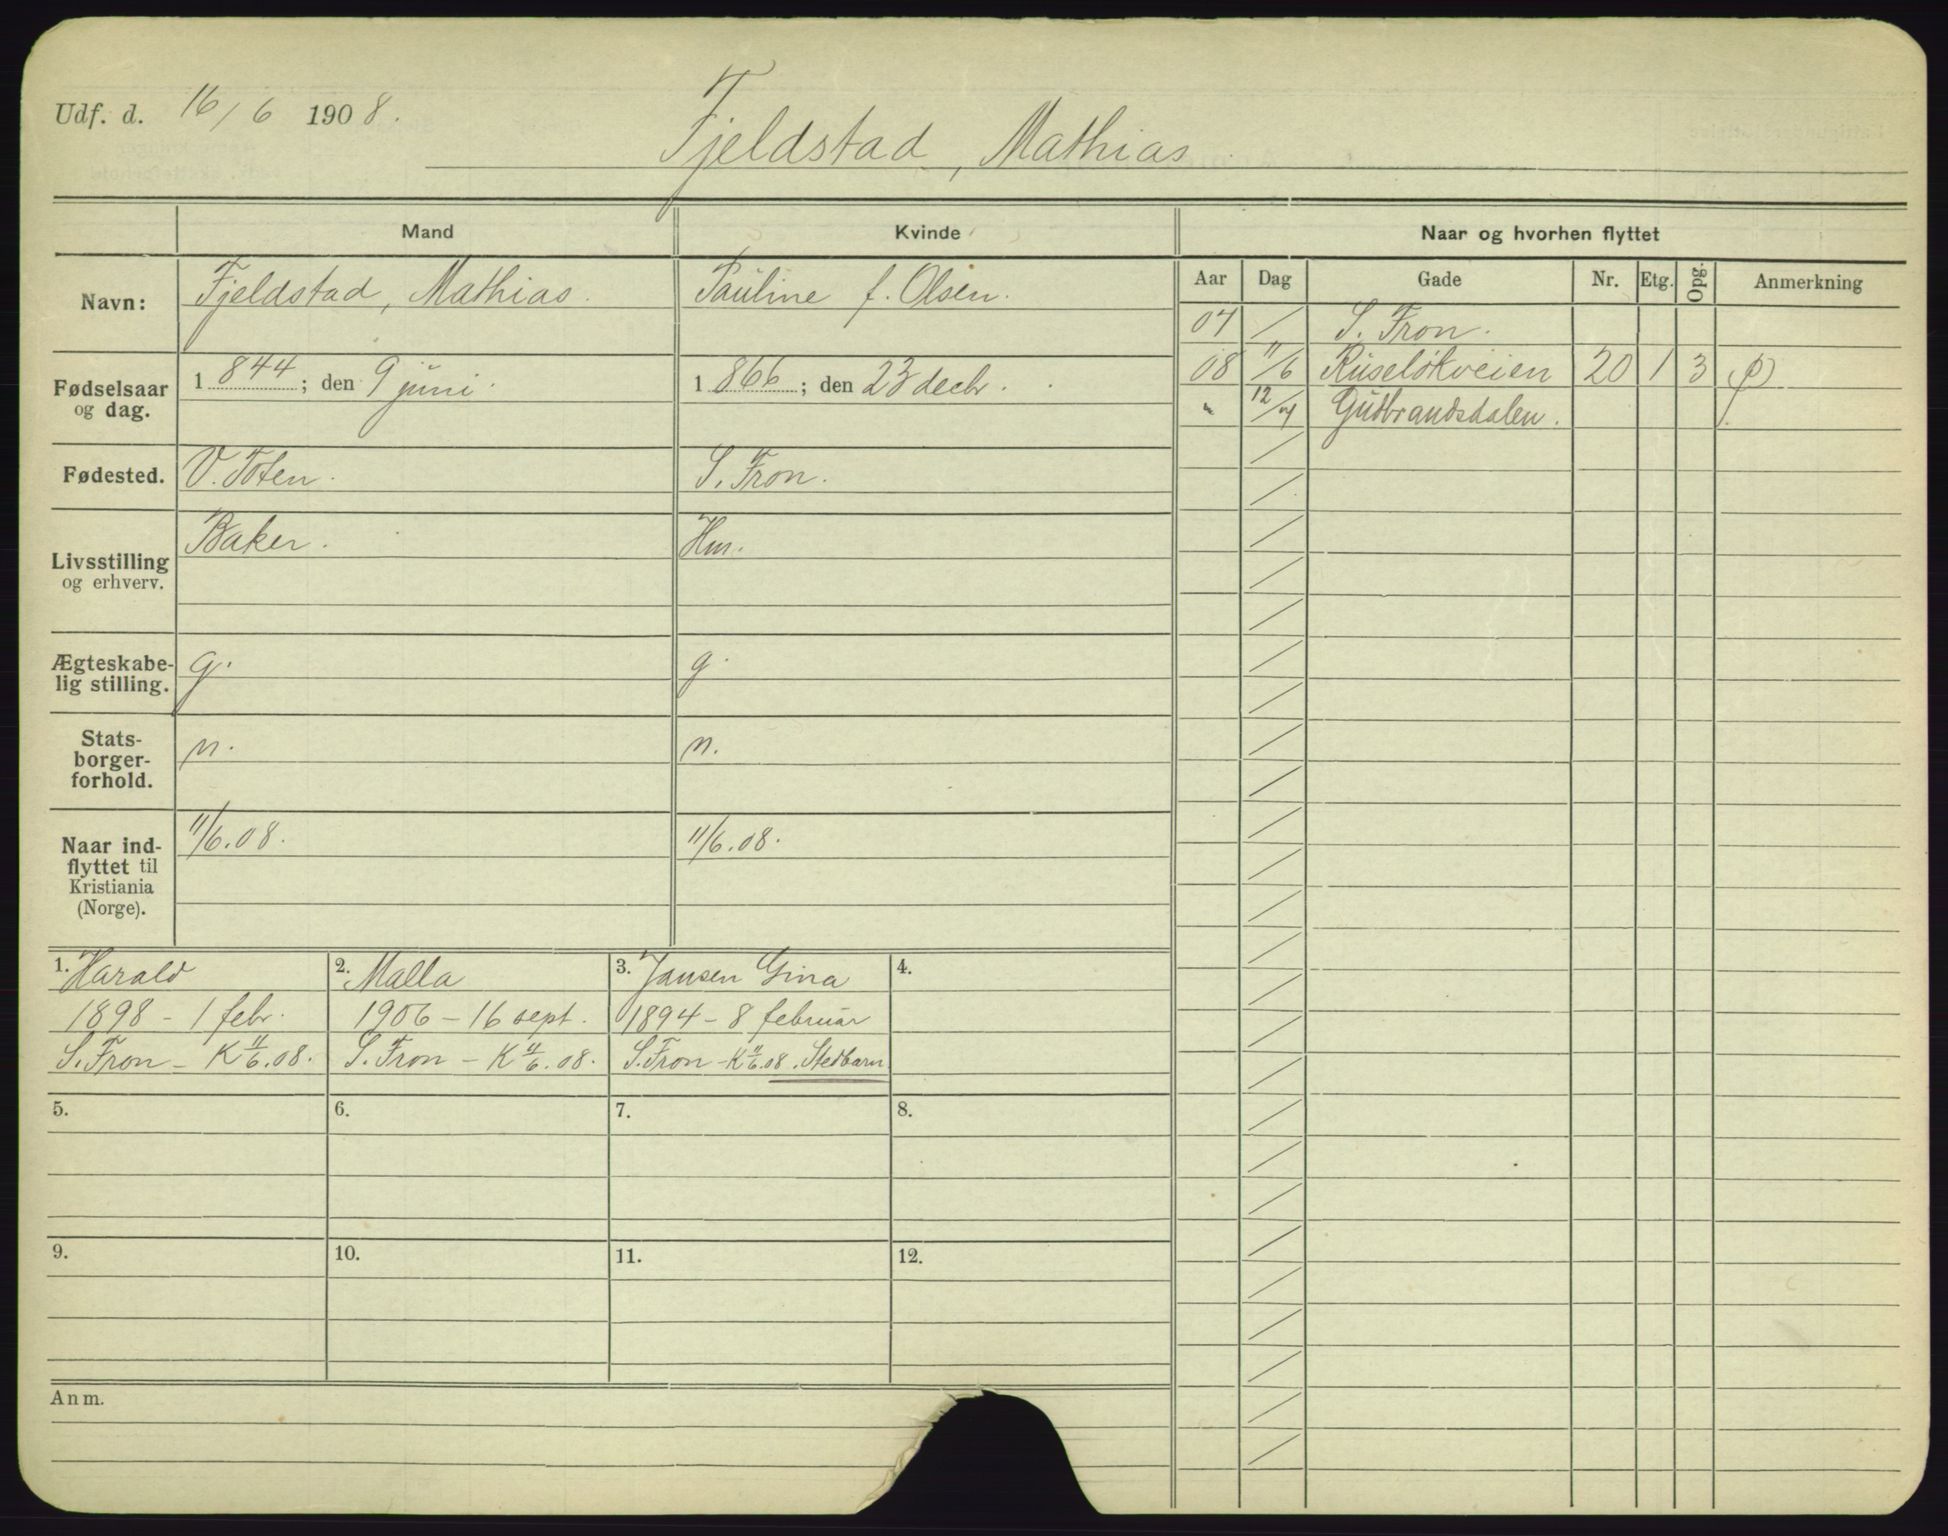 Udf. d. 16/6 1908.
Fjeldstad, Mathias
Mand
Kvinde
Naar og hvorhen flyttet
Navn: Fjeldstad, Mathias. Pauline f. Olsen.
Fødselsaar og dag. 1844; den 9 juni. 1866; den 23 decbr.
Fødested. V. Toten. S. Fron.
Livsstilling og erhverv. Baker. Hm.
Ægteskabe-
lig stilling. g. g.
Stats-
borger-
forhold. n. n.
Naar ind-
flyttet til
Kristiania
(Norge). 11/6.08. 11/6.08.
Aar Dag Gade Nr. Etg. Opg. Anmerkning
07 / S. Fron.
08 11/6 Ruseløkveien 20 1 3
" 12/ Gudbrandsdalen.
1. Harald
1898 - 1 febr.
S. Fron - K 11/6.08.
2. Malla
1906 - 16 sept.
S. Fron - K 11/6.08.
3. Jansen Gina
1894 - 8 februar
S. Fron - K 11/6.08. Stedbarn.
4.
5.
6.
7.
8.
9.
10.
11.
12.
Anm.